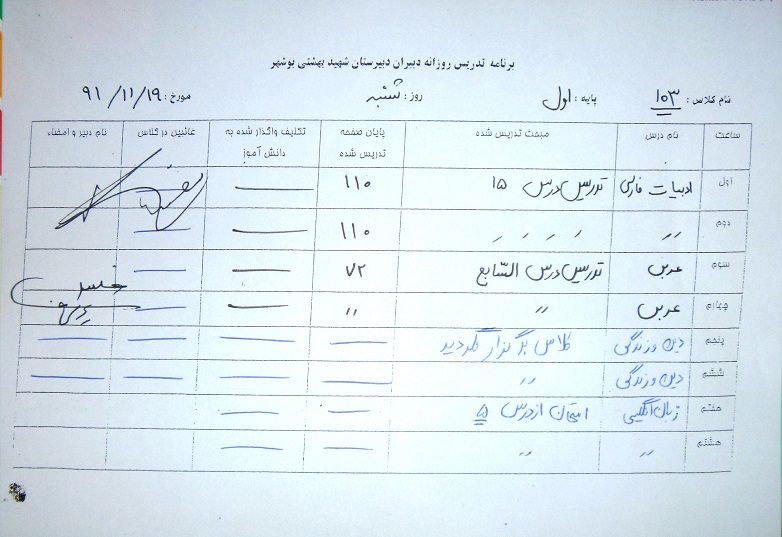 برنامه تدریس روزانه دبیران دبیرستان شهید بهشتی بوشهر
نام کلاس : ۱۰۳ پایه : اول روز : شنبه مورخ : ۹۱/۱۱/۱۹
ساعت نام درس مبحث تدریس شده پایان صفحه تدریس شده تکلیف واگذار شده به دانش آموز غائبین در کلاس نام دبیر و امضاء
اول ادبیات فارسی تدریس درس ۱۵ ۱۱۰
دوم 〃 〃 〃 〃 〃 ۱۱۰
سوم عربی تدریس درس السّابع ۷۲
چهارم عربی 〃 〃
پنجم دین و زندگی کلاس برگزار نگردید
ششم دین و زندگی 〃
هفتم زبان انگلیسی امتحان از درس ۵
هشتم 〃 〃